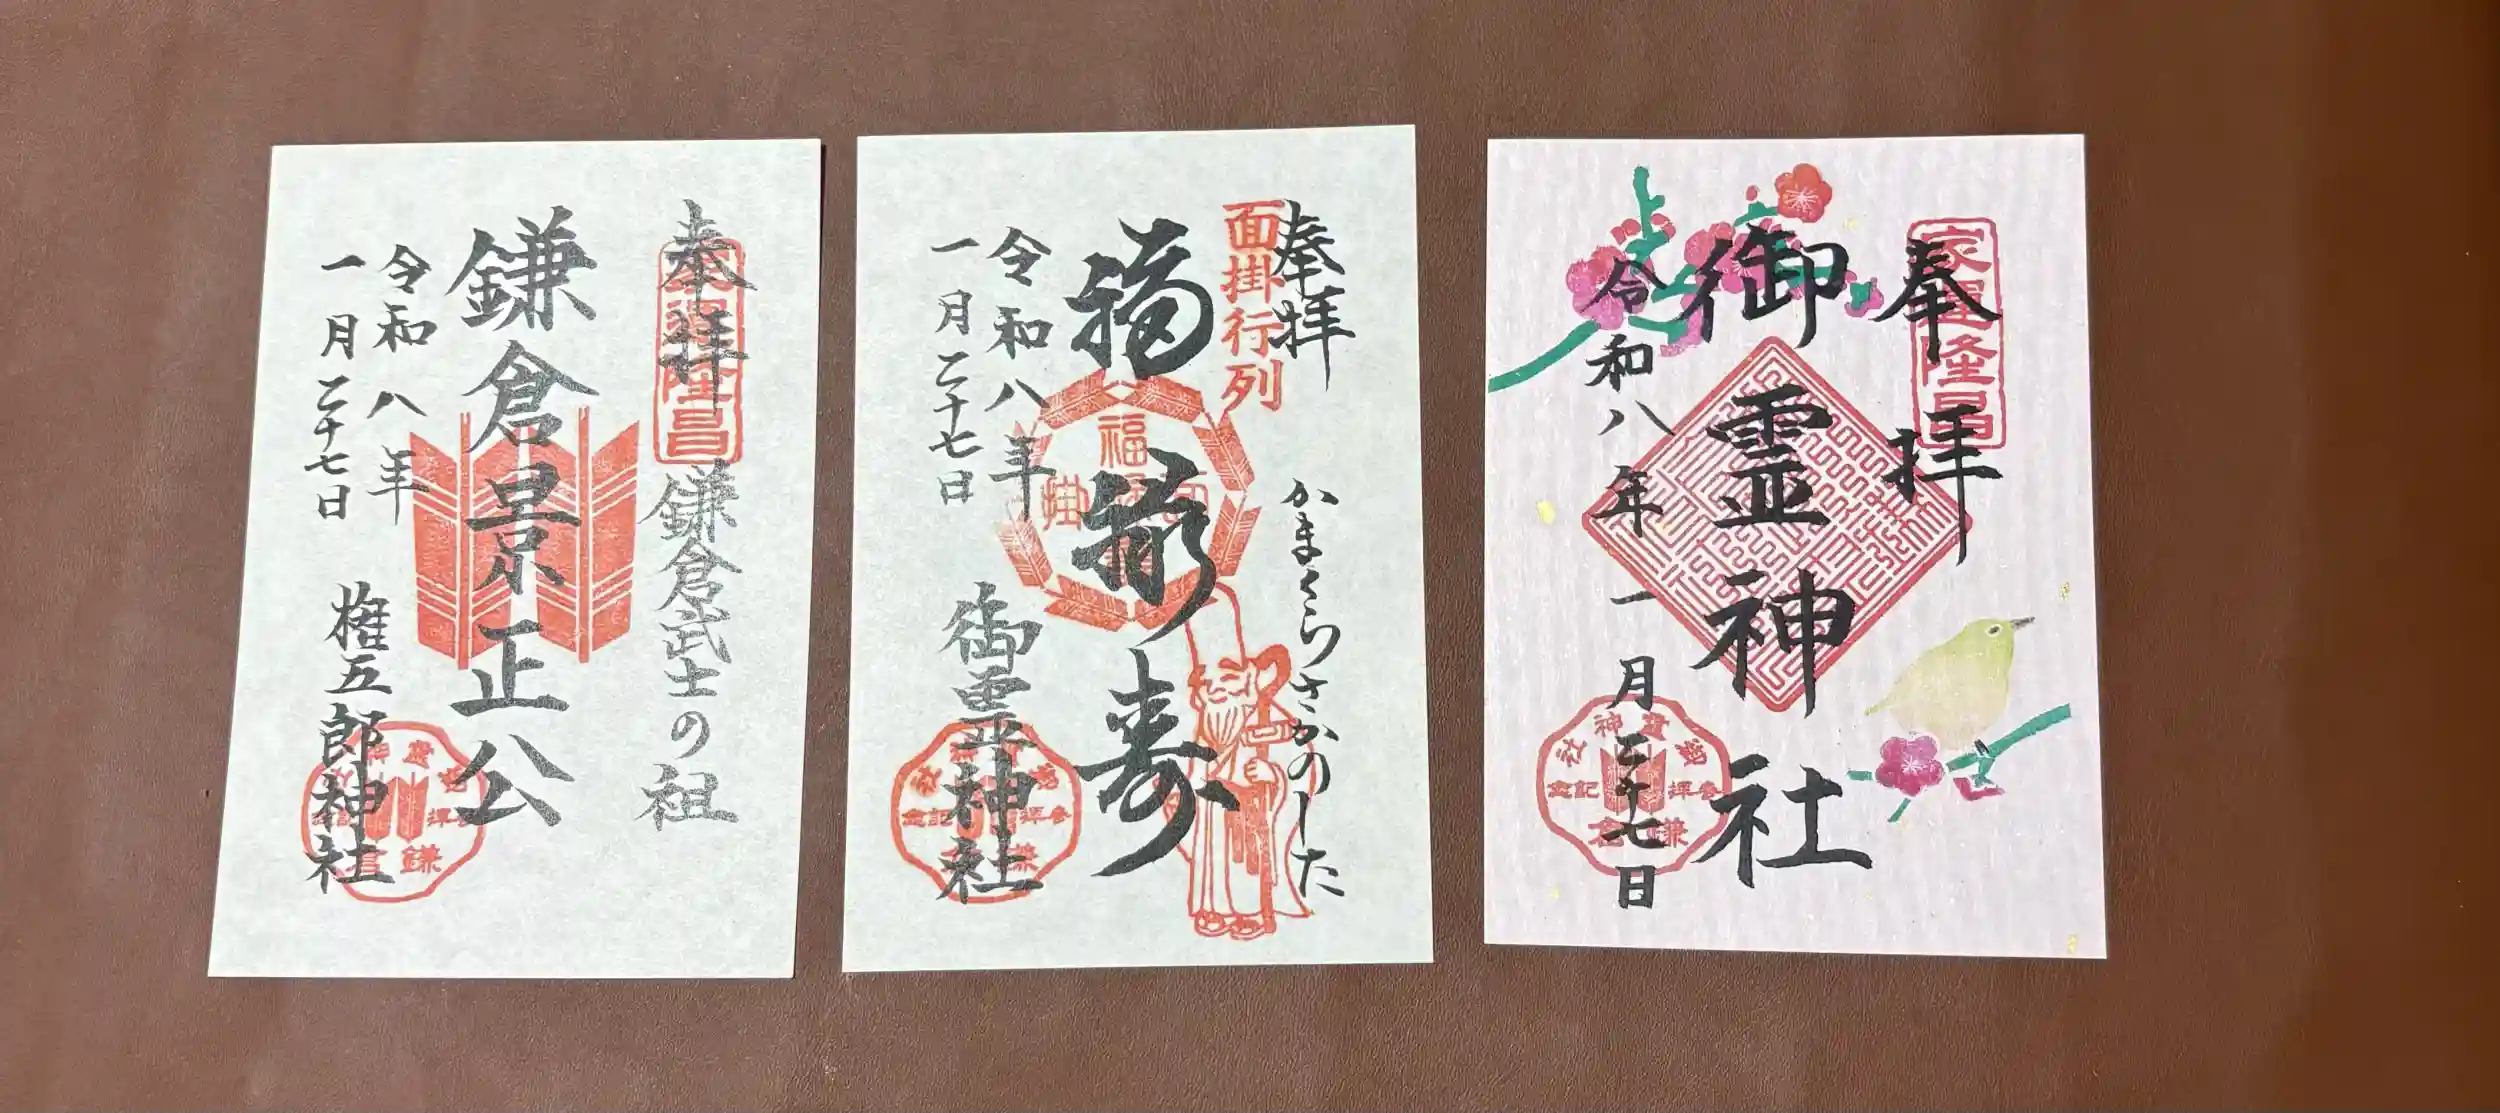 奉拝
家運隆昌
鎌倉武士の祖
鎌倉景正公
令和八年
一月二十七日
権五郎神社
奉拝
面掛行列
かまくらさかのした
福禄寿
令和八年
一月二十七日
御霊神社
奉拝
家運隆昌
御霊神社
令和八年一月二十七日
御霊神社
参拝記念
鎌倉